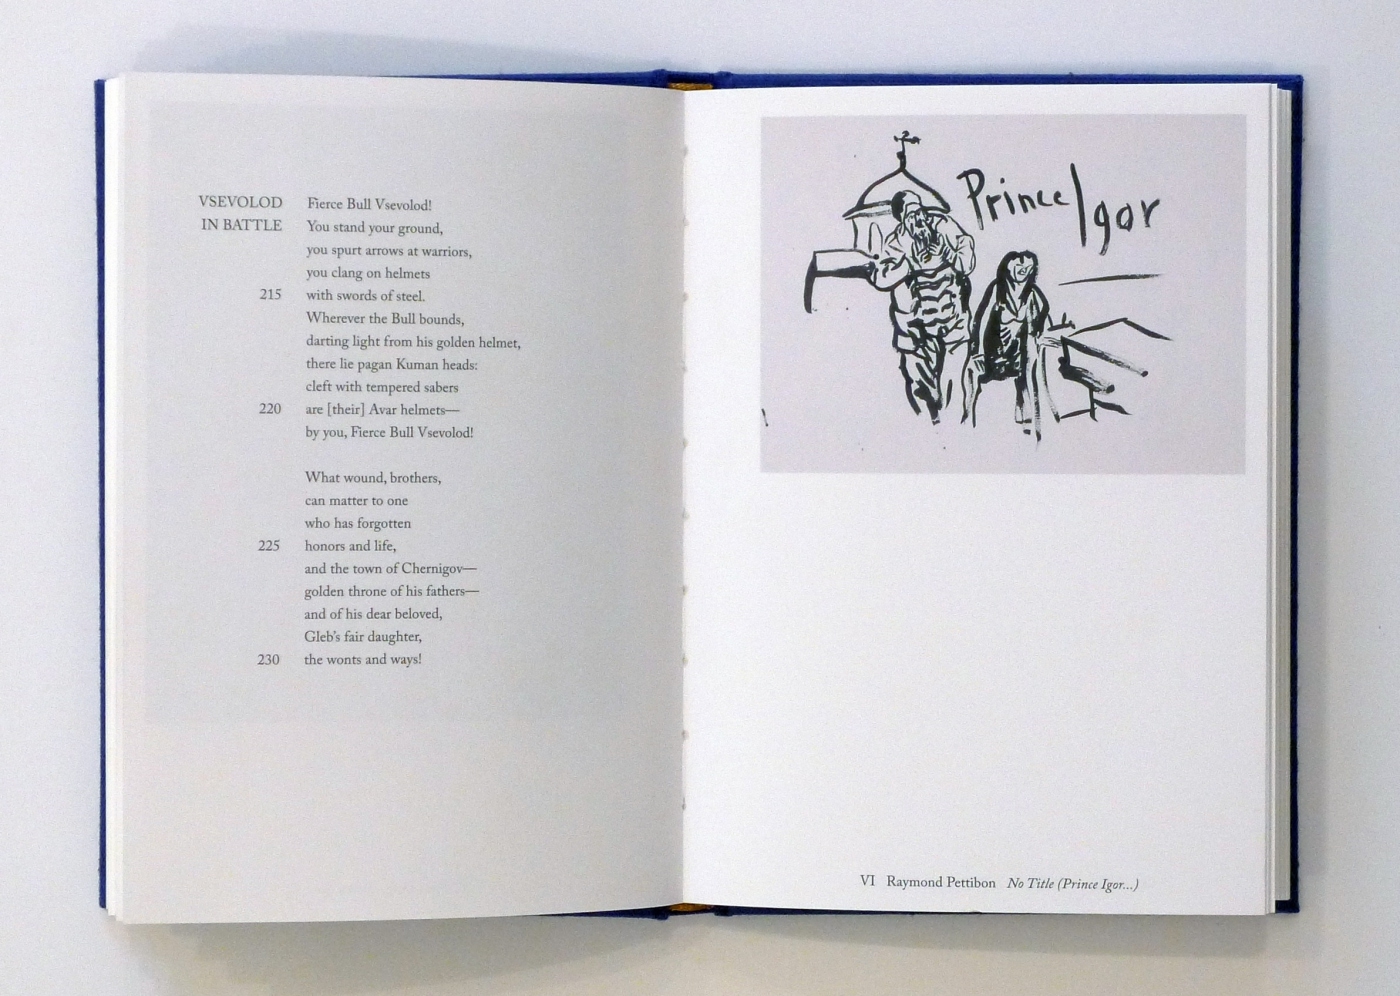 VSEVOLOD Fierce Bull Vsevolod!
IN BATTLE You stand your ground,
you spurt arrows at warriors,
you clang on helmets
215 with swords of steel.
Wherever the Bull bounds,
darting light from his golden helmet,
there lie pagan Kuman heads:
cleft with tempered sabers
220 are [their] Avar helmets—
by you, Fierce Bull Vsevolod!
What wound, brothers,
can matter to one
who has forgotten
225 honors and life,
and the town of Chernigov—
golden throne of his fathers—
and of his dear beloved,
Gleb's fair daughter,
230 the wonts and ways!
Prince Igor
VI Raymond Pettibon No Title (Prince Igor...)